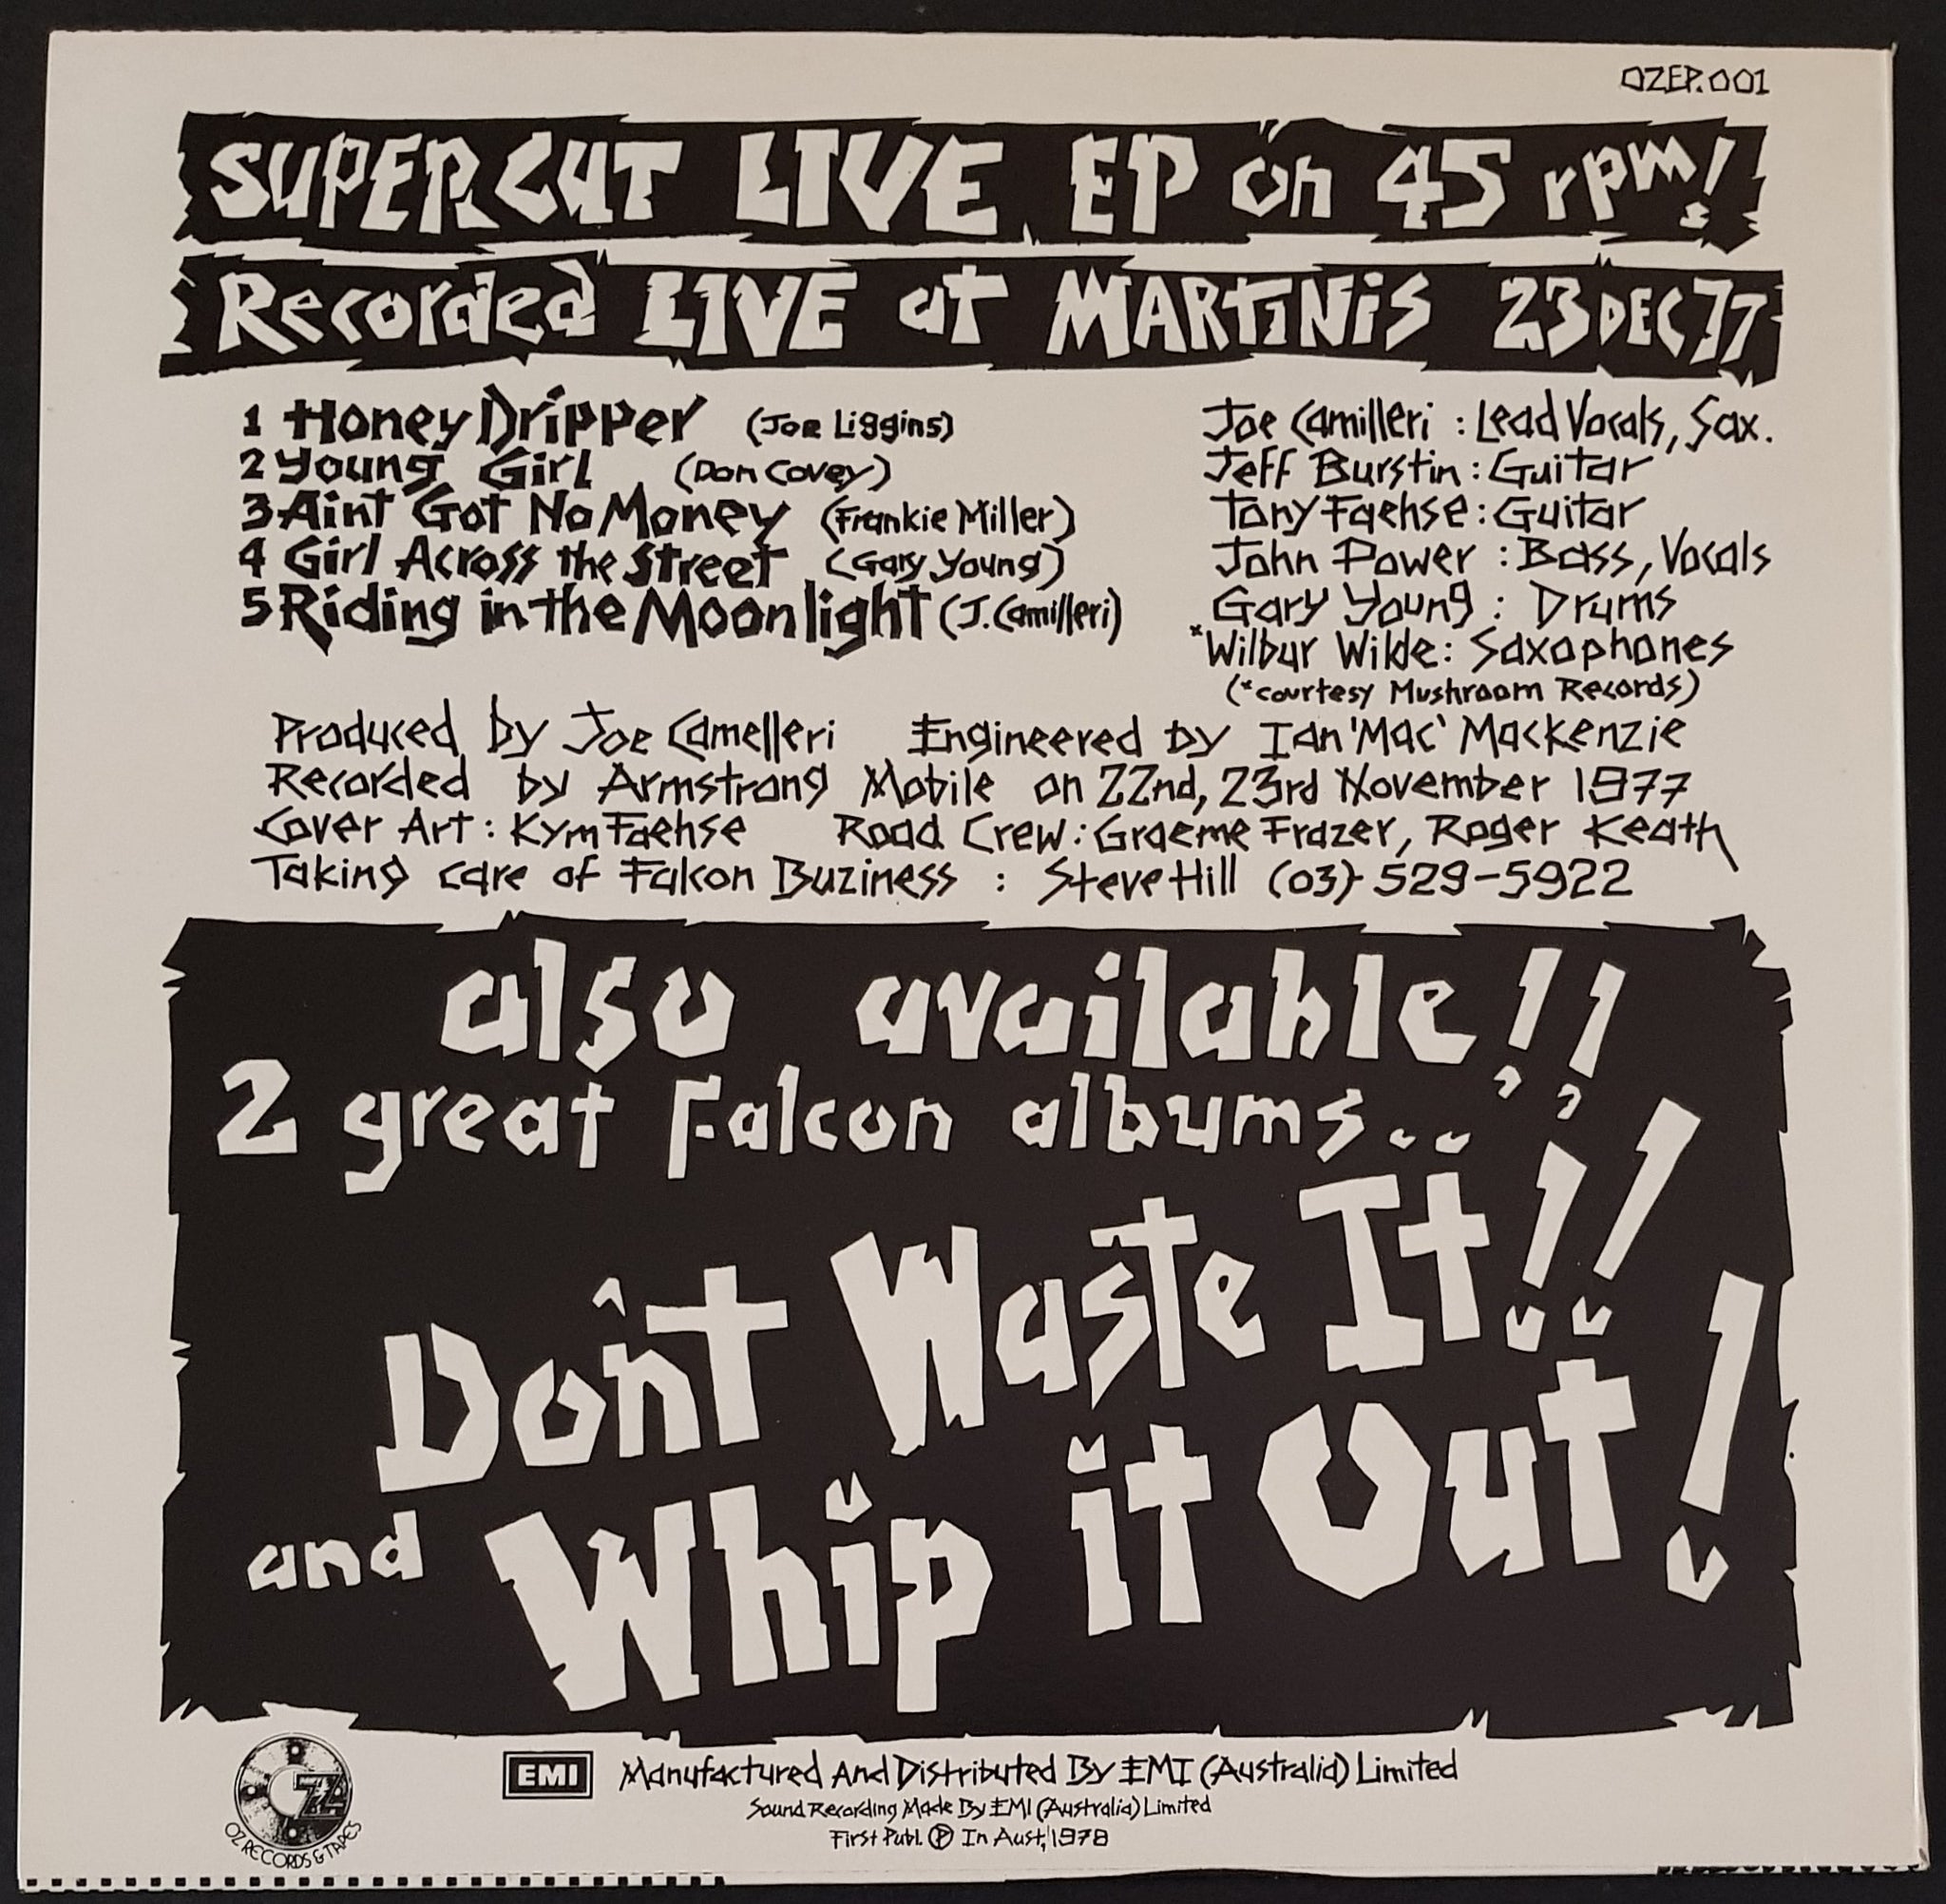 OZEP.001
SUPER CUT LIVE EP on 45 rpm!
Recorded LIVE at MARTINIS 23 DEC 77
1 Honey Dripper (Joe Liggins)
2 Young Girl (Don Covey)
3 Aint Got No Money (Frankie Miller)
4 Girl Across the Street (Gary Young)
5 Riding in the Moonlight (J. Camilleri)
Joe Camilleri : Lead Vocals, Sax.
Jeff Burstin : Guitar
Tony Faehse : Guitar
John Power : Bass, Vocals
Gary Young : Drums
*Wilbur Wilde : Saxophones
(*courtesy Mushroom Records)
Produced by Joe Camelleri Engineered by Ian 'Mac' Mackenzie
Recorded by Armstrong Mobile on 22nd, 23rd November 1977
Cover Art : Kym Faehse Road Crew : Graeme Frazer, Roger Keath
Taking care of Falcon Buziness : Steve Hill (03) 529-5922
also available!!
2 great Falcon albums..
Don't Waste It!!
and Whip it Out!
OZ
OZ RECORDS & TAPES
EMI Manufactured And Distributed By EMI (Australia) Limited
Sound Recording Made By EMI (Australia) Limited
First Publ. Ⓟ In Aust, 1978